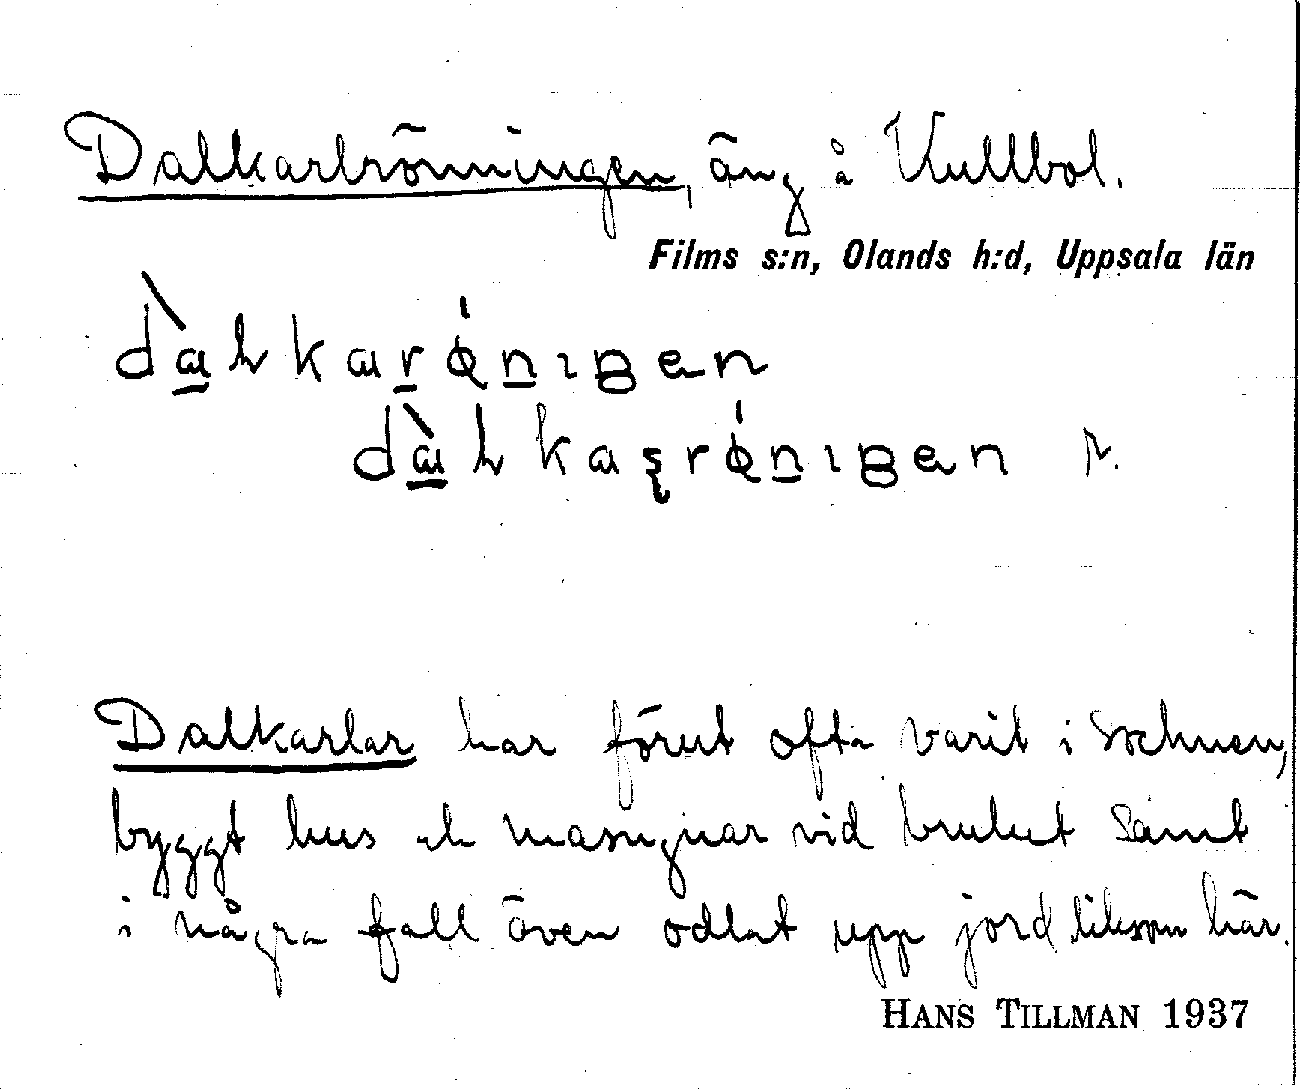 Dalkarlrönningen, äng å Kullbol.
Films s:n, Olands h:d, Uppsala län
Dalkarlar har förut ofta varit i socknen,
byggt hus och masugnar vid bruket samt
i några fall även odlat upp jord liksom här.
HANS TILLMAN 1937